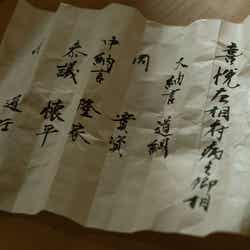 喜悦左相府病之卿相
大納言 道綱
同 實資
中納言 隆家
参議 懐平
通任